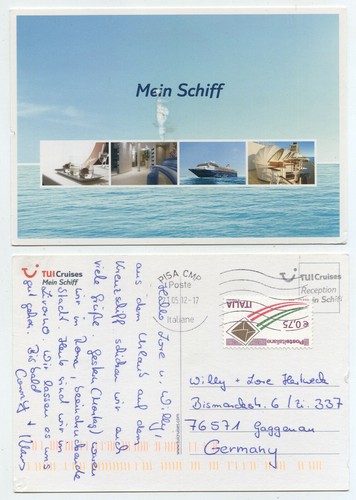 Mein Schiff
TUI Cruises
Mein Schiff
PISA CMP
Poste
21.05.12-17
Italiane
TUI Cruises
Reception
Mein Schiff
ITALIA
€0,75
Posteitaliane
Hallo Lore u. Willy,
aus dem Urlaub auf dem
Kreuzschiff schicken wir euch
viele Grüße. Gestern (Montag) waren
wir in Rom, beeindruckende
Stadt. Heute sind wir in
Livorno. Wir lassen es uns
gut gehen. Bis bald
Willy + Lore
Bismarckstr. 6 / Zi. 337
76571 Gaggenau
Germany